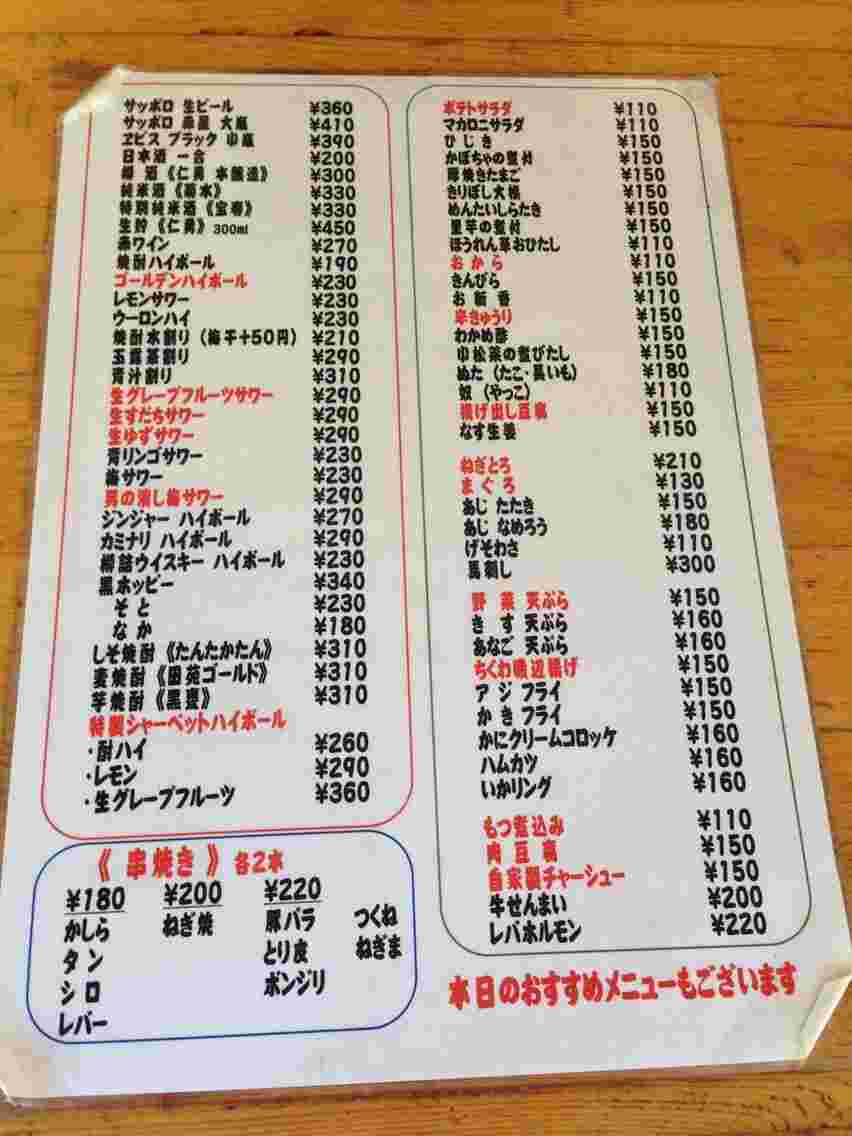 サッポロ 生ビール ¥360
サッポロ 赤星 大瓶 ¥410
ヱビス ブラック 小瓶 ¥390
日本酒 一合 ¥200
樽 酒《仁勇 本醸造》 ¥300
純米酒《菊水》 ¥330
特別純米酒《宝寿》 ¥330
生貯《仁勇》300ml ¥450
赤ワイン ¥270
焼酎ハイボール ¥190
ゴールデンハイボール ¥230
レモンサワー ¥230
ウーロンハイ ¥230
焼酎水割り(梅干+50円) ¥210
玉露茶割り ¥290
青汁割り ¥310
生グレープフルーツサワー ¥290
生すだちサワー ¥290
生ゆずサワー ¥290
青リンゴサワー ¥230
梅サワー ¥230
男の潰し梅サワー ¥290
ジンジャー ハイボール ¥270
カミナリ ハイボール ¥290
樽詰ウイスキー ハイボール ¥230
黒ホッピー ¥340
そと ¥230
なか ¥180
しそ焼酎《たんたかたん》 ¥310
麦焼酎《田苑ゴールド》 ¥310
芋焼酎《黒甕》 ¥310
特製シャーベットハイボール
・酎ハイ ¥260
・レモン ¥290
・生グレープフルーツ ¥360
《 串焼き 》各2本
¥180 ¥200 ¥220
かしら ねぎ焼 豚バラ つくね
タン とり皮 ねぎま
シロ ボンジリ
レバー
ポテトサラダ ¥110
マカロニサラダ ¥110
ひじき ¥150
かぼちゃの煮付 ¥150
厚焼きたまご ¥150
きりぼし大根 ¥150
めんたいしらたき ¥150
里芋の煮付 ¥150
ほうれん草おひたし ¥110
おから ¥110
きんぴら ¥150
お新香 ¥110
辛きゅうり ¥150
わかめ酢 ¥150
小松菜の煮びたし ¥150
ぬた(たこ・長いも) ¥180
奴(やっこ) ¥110
揚げ出し豆腐 ¥150
なす生姜 ¥150
ねぎとろ ¥210
まぐろ ¥130
あじ たたき ¥150
あじ なめろう ¥180
げそわさ ¥110
馬刺し ¥300
野菜 天ぷら ¥150
きす 天ぷら ¥160
あなご 天ぷら ¥160
ちくわ磯辺揚げ ¥150
アジ フライ ¥150
かき フライ ¥150
かにクリームコロッケ ¥160
ハムカツ ¥160
いかリング ¥160
もつ煮込み ¥110
肉豆腐 ¥150
自家製チャーシュー ¥150
牛せんまい ¥200
レバホルモン ¥220
本日のおすすめメニューもございます